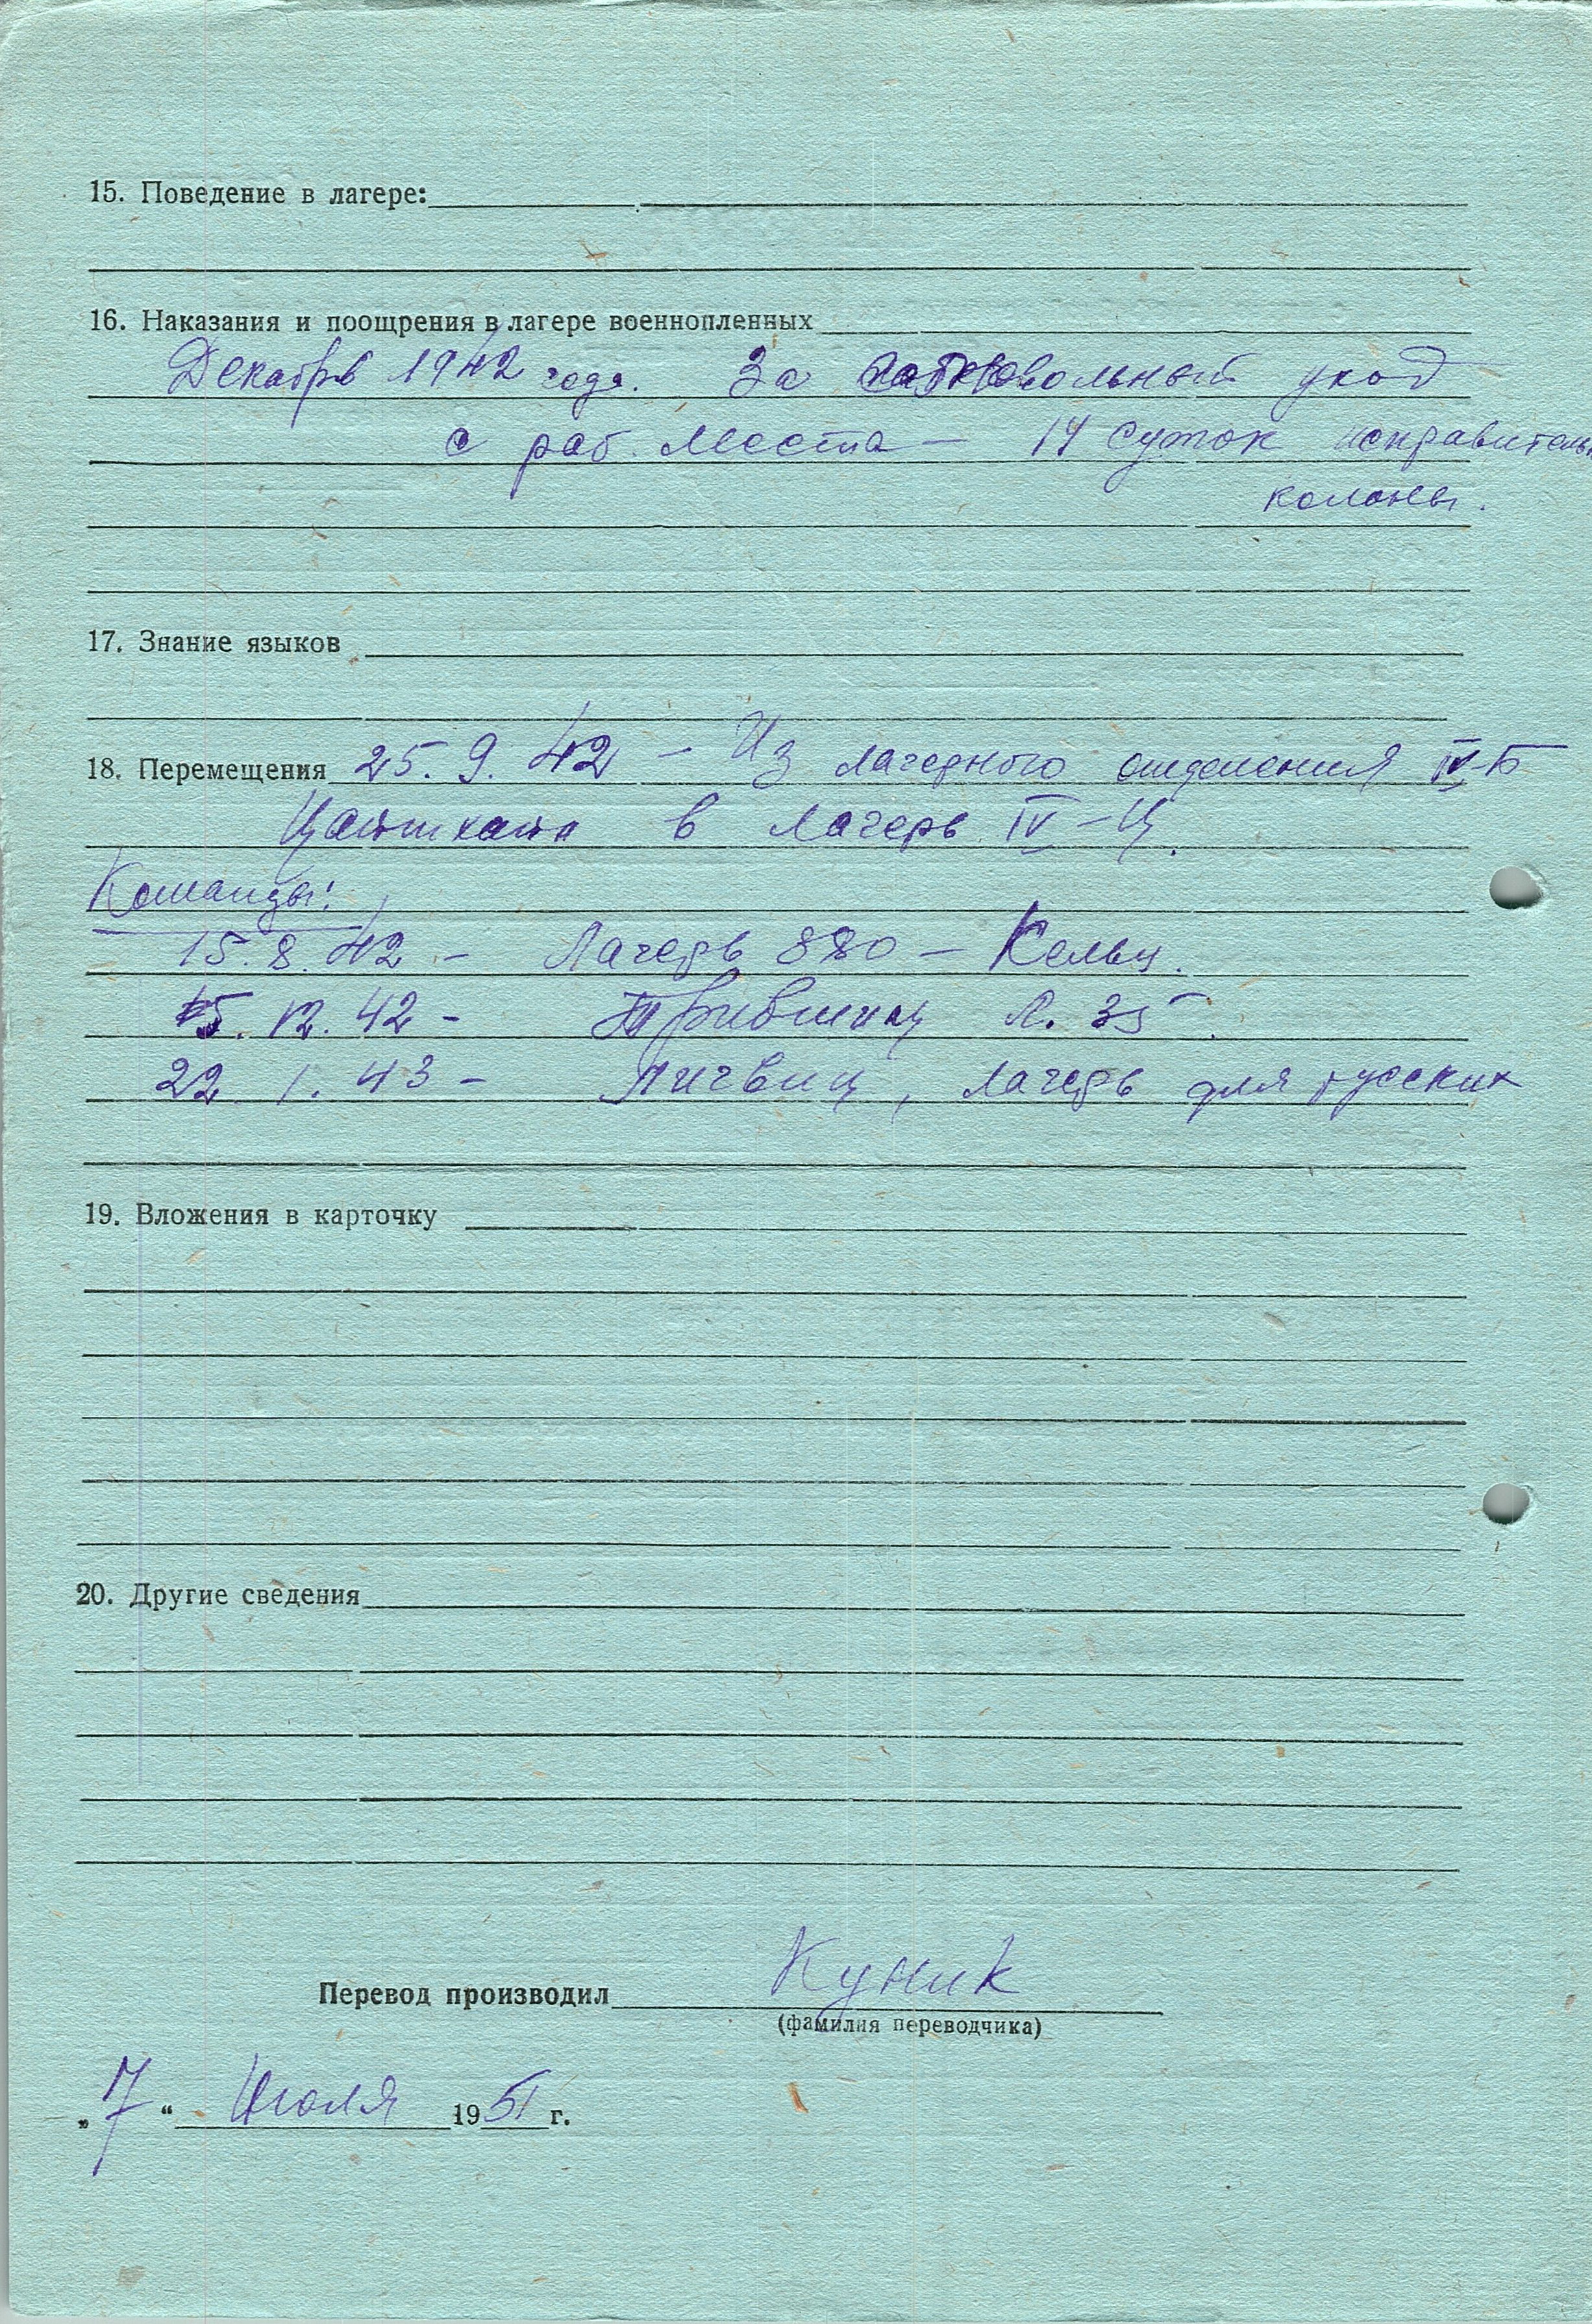 15. Поведение в лагере:
16. Наказания и поощрения в лагере военнопленных
Декабрь 1942 года. За самовольный уход
с раб. места — 14 суток исправительн
колоны.
17. Знание языков
18. Перемещения 25.9.42 — Из лагерного отделения IV-Б
в лагерь IV-Ц.
Команды:
15.8.42 — Лагерь 880 — Кельц.
15.12.42 — Л. 35
22.1.43 — Лигвиц, лагерь для русских
19. Вложения в карточку
20. Другие сведения
Перевод производил Куник
(фамилия переводчика)
„7“ Июля 1951 г.